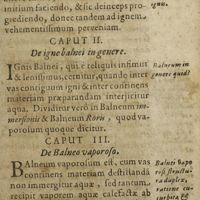 initium faciendo, & sic deinceps pro-
grediendo, donec tandem ad ignem
vehementissimum perveniam.
ignis.
CAPUT II.
De igne balnei in genere.
IGnis Balnei, qui è reliquis infimus
& lenissimus, cernitur, quando inter
vas contiguum igni & inter continens
materiam præparandam interjicitur
aqua. Dividitur verò in Balneum im-
mersionis & Balneum Roris, quod va-
porosum quoque dicitur.
Balneum in
genere quid?
CAPUT III.
De Balneo vaporoso.
BAlneum vaporosum est, cum vas
continens materiam destillandã
non immergitur aquæ, sed tantum
recipit vaporem aquæ calefactæ ab
Balnei vapo
rosi
ra duplex,
ratione